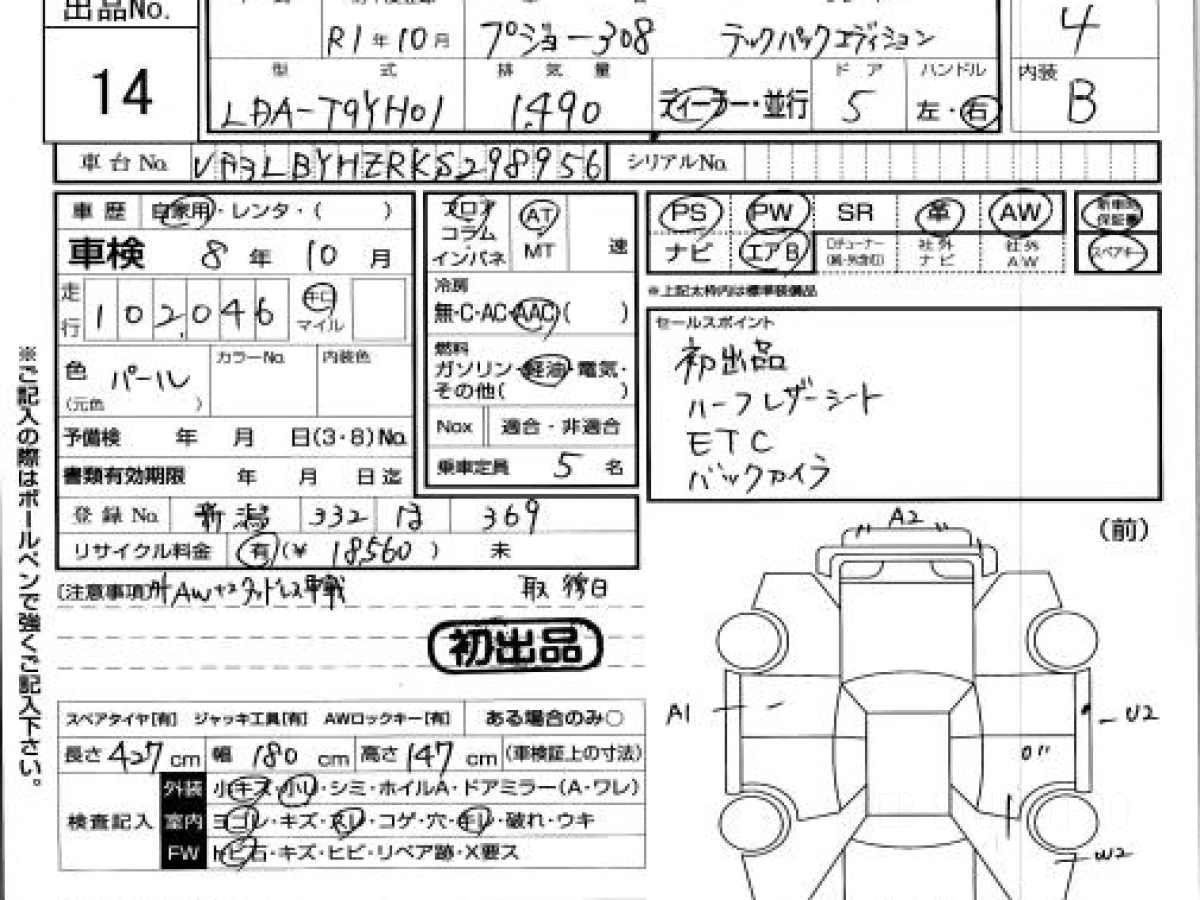 出品No.
14
R1年10月
プジョー308
テックパックエディション
4
型 式
排 気 量
ドア
ハンドル
内装
LDA-T9YH01
1.490
ディーラー・並行
5
左・右
B
車台No.
シリアルNo.
車歴 自家用・レンタ・( )
車検 8年10月
走行 102,046 キロ マイル
色 パール
(元色 )
カラーNo.
内装色
予備検 年 月 日(3・8)No.
書類有効期限 年 月 日迄
登録No. 新潟 332 は 369
リサイクル料金 有(¥ 18,560 ) 未
フロア
コラム
インパネ
AT
MT
速
冷房
無・C・AC・AAC( )
燃料
ガソリン・軽油・電気・
その他( )
Nox 適合・非適合
乗車定員 5名
PS PW SR 革 AW
ナビ エアB 社外ナビ 社外AW
新車時保証書
スペアキー
※上記太枠内は標準装備品
セールスポイント
初出品
ハーフレザーシート
ETC
バックカメラ
[注意事項]
初出品
スペアタイヤ[有] ジャッキ工具[有] AWロックキー[有] ある場合のみ○
長さ427cm 幅180cm 高さ147cm (車検証上の寸法)
検査記入
外装 小キズ・小U・シミ・ホイルA・ドアミラー(A・ワレ)
室内 ヨゴレ・キズ・スレ・コゲ・穴・キレ・破れ・ウキ
FW トビ石・キズ・ヒビ・リペア跡・X要ス
※ご記入の際はボールペンで強くご記入下さい。
(前)
A2
A1
U2
W2